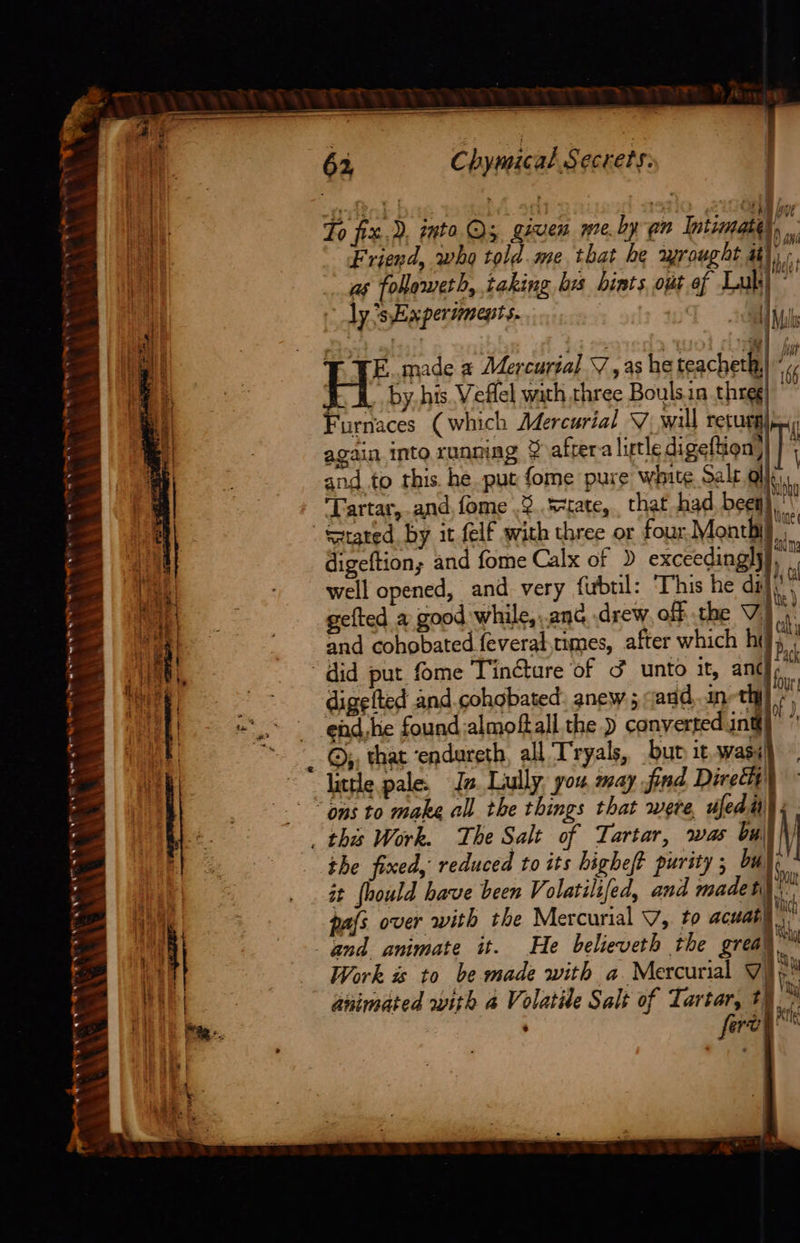 62 Chymical Secrets.
To fix ☽ into ☉; given me by an Intimate
Friend, who told me that he wrought it
as followeth, taking his hints out of Lul-
ly'sExperiments.
HE made a Mercurial 🜄, as he teacheth,
by his Veſſel with three Bouls in three
Furnaces (which Mercurial 🜄 will return
again into running ☿ after a little digeſtion)
and to this he put ſome pure white Salt of
Tartar, and ſome ☿ 🜞tate, that had been
tated by it ſelf with three or four Months
digeſtion; and ſome Calx of ☽ exceedingly
well opened, and very ſubtil: This he di-
geſted a good while, and drew off the 🜄
and cohobated ſeveral times, after which he
did put ſome Tincture of ♂ unto it, and
digeſted and cohobated anew; and in the
end he found almoſt all the ☽ converted into
☉, that endureth all Tryals, but it was a
little pale. In Lully you may find Directi-
ons to make all the things that were uſed in
this Work. The Salt of Tartar, was but
the fixed, reduced to its higheſt purity; but
it ſhould have been Volatiliſed, and made to
paſs over with the Mercurial 🜄, to acuate
and animate it. He believeth the great
Work is to be made with a Mercurial 🜄
animated with a Volatile Salt of Tartar,